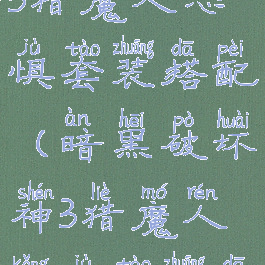 3猎魔人恐
jù tào zhuāng dā pèi
惧套装搭配
àn hēi pò huài
（暗黑破坏
shén liè mó rén
神3猎魔人
kǒng jù tào zhuāng dā